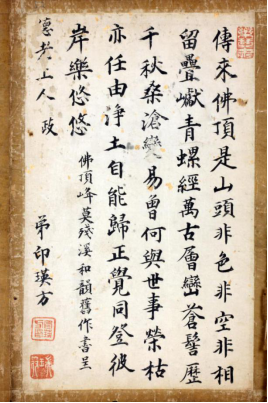 傳來佛頂是山頭非色非空非相
留疊巘青螺經萬古層巒蒼髻歷
千秋桑滄變易曾何與世事榮枯
亦任由淨土自能歸正覺同登彼
岸樂悠悠
佛頂峰莫殘溪和韻舊作書呈
上人 政
弟印瑛方